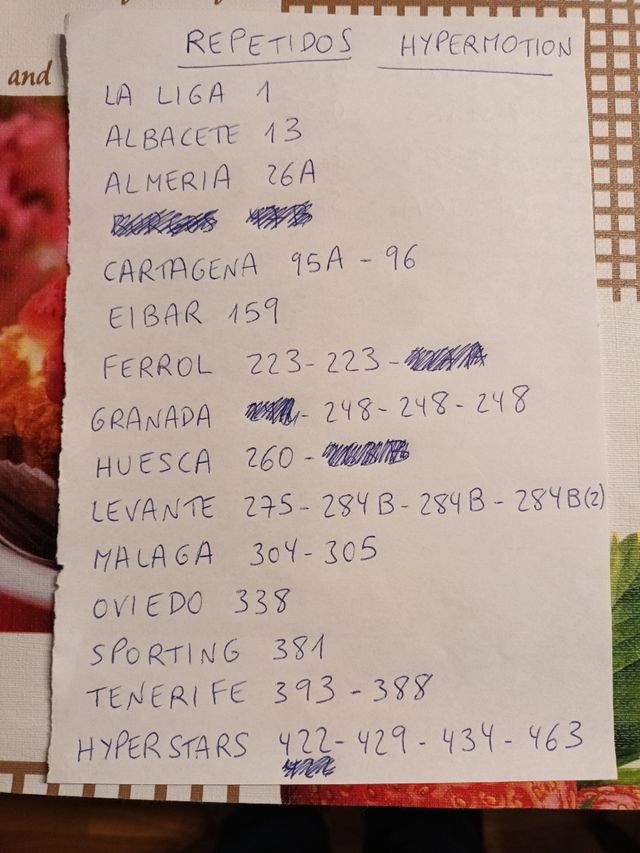 and
REPETIDOS HYPERMOTION
LA LIGA 1
ALBACETE 13
ALMERIA 26A
CARTAGENA 95A - 96
EIBAR 159
FERROL 223 - 223 -
GRANADA - 248 - 248 - 248
HUESCA 260 -
LEVANTE 275 - 284B - 284B - 284B(2)
MALAGA 304 - 305
OVIEDO 338
SPORTING 381
TENERIFE 393 - 388
HYPERSTARS 422 - 429 - 434 - 463